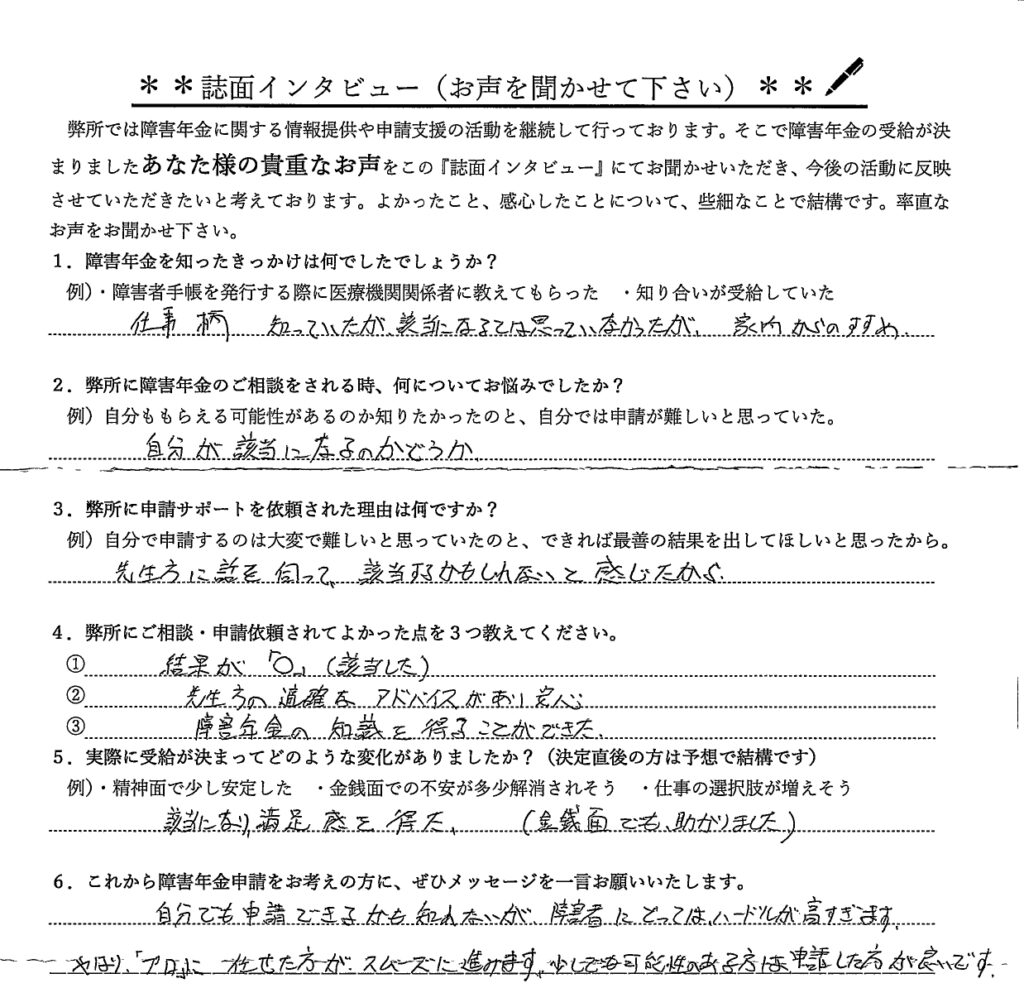 ＊ ＊ 誌面インタビュー（お声を聞かせて下さい） ＊ ＊
弊所では障害年金に関する情報提供や申請支援の活動を継続して行っております。そこで障害年金の受給が決
まりましたあなた様の貴重なお声をこの『誌面インタビュー』にてお聞かせいただき、今後の活動に反映
させていただきたいと考えております。よかったこと、感心したことについて、些細なことで結構です。率直な
お声をお聞かせ下さい。
１．障害年金を知ったきっかけは何でしたでしょうか？
例）・障害者手帳を発行する際に医療機関関係者に教えてもらった　・知り合いが受給していた
仕事柄　知っていたが、該当になるとは思っていなかったが、　家内からのすすめ.
２．弊所に障害年金のご相談をされる時、何についてお悩みでしたか？
例）自分ももらえる可能性があるのか知りたかったのと、自分では申請が難しいと思っていた。
自分が該当になるのかどうか.
３．弊所に申請サポートを依頼された理由は何ですか？
例）自分で申請するのは大変で難しいと思っていたのと、できれば最善の結果を出してほしいと思ったから。
先生方に話を伺って、該当するかもしれないと感じたから.
４．弊所にご相談・申請依頼されてよかった点を３つ教えてください。
① 結果が「〇」（該当した）
② 先生方の適確なアドバイスがあり安心
③ 障害年金の知識を得ることができた.
５．実際に受給が決まってどのような変化がありましたか？（決定直後の方は予想で結構です）
例）・精神面で少し安定した　・金銭面での不安が多少解消されそう　・仕事の選択肢が増えそう
該当になり、満足感を得た.　（金銭面でも、助かりました）
６．これから障害年金申請をお考えの方に、ぜひメッセージを一言お願いいたします。
自分でも申請できるかも知れないが、障害者にとっては、ハードルが高すぎます.
やはり、「プロ」に任せた方が、スムーズに進みます。少しでも可能性のある方は、申請した方が良いです.